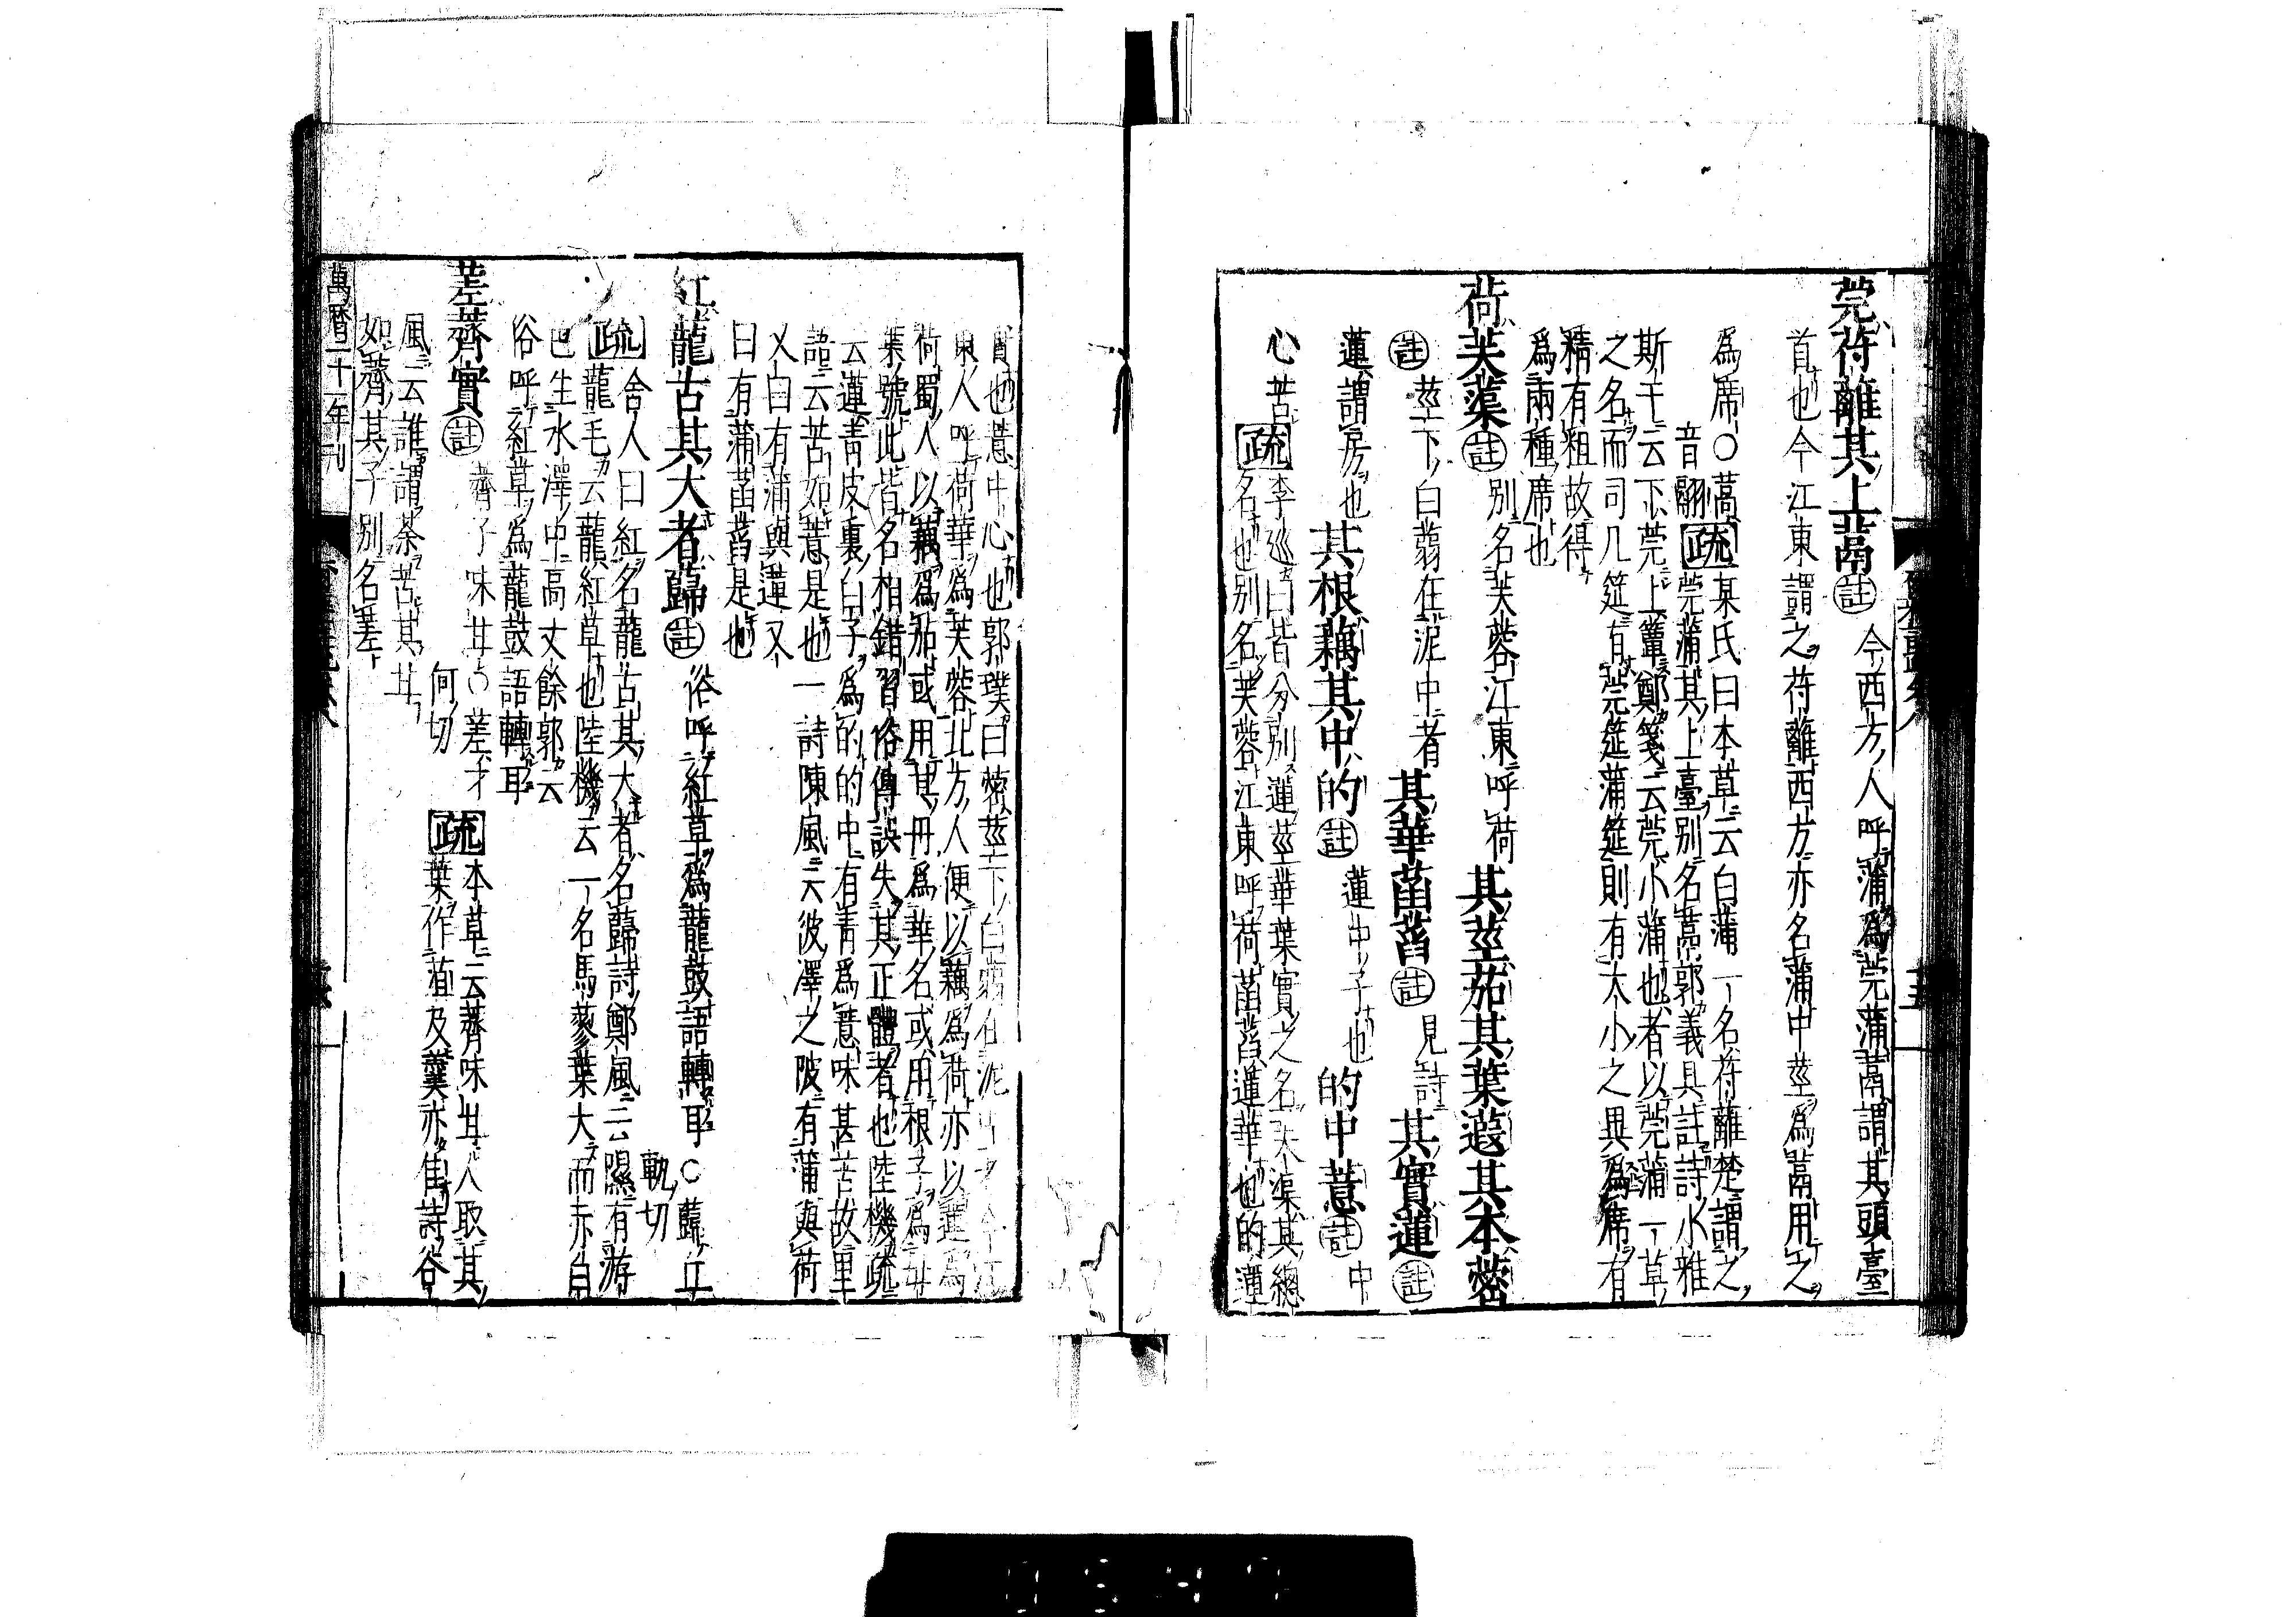 莞苻蘺其上蒚註今西方人呼蒲爲莞蒲蒚謂其頭臺
首也今江東謂之苻蘺西方亦名蒲中莖爲蒚用之
爲席○蒚
音翮疏某氏曰本草云白蒲一名苻蘺楚謂之
莞蒲其上臺別名蒚郭義具註詩小雅
斯干云下莞上簟鄭箋云莞小蒲也者以莞蒲一草
之名而司几筵有莞筵蒲筵則有大小之異爲席有
精有粗故得
爲兩種席也
荷芙蕖註別名芙蓉江東呼荷其莖茄其葉蕸其本蔤
註莖下白蒻在泥中者其華菡萏註見詩其實蓮註
蓮謂房也其根藕其中的註蓮中子也的中薏註中
心苦疏李巡曰皆分別蓮莖華葉實之名芙渠其總
名也別名芙蓉江東呼荷菡萏蓮華也的蓮
實也薏中心也郭璞曰蔤莖下白蒻在泥中者今江
東人呼荷華爲芙蓉北方人便以藕爲荷亦以蓮爲
荷蜀人以藕爲茄或用其母爲華名或用根子爲母
葉號此皆名相錯習俗傳誤失其正體者也陸機疏
云蓮青皮裏白子爲的的中有青爲薏味甚苦故里
語云苦如薏是也一詩陳風云彼澤之陂有蒲與荷
又曰有蒲與蓮又
曰有蒲菡萏是也
紅蘢古其大者蘬註俗呼紅草爲蘢鼓語轉耳○蘬丘
軌切
疏舍人曰紅名蘢古其大者名蘬詩鄭風云隰有游
龍毛云龍紅草也陸機云一名馬蓼葉大而赤白
色生水澤中高丈餘郭云
俗呼紅草爲蘢鼓語轉耳
蒫薺實註薺子味甘○蒫才
何切疏本草云薺味甘人取其
葉作菹及羹亦佳詩谷
風云誰謂荼苦其甘
如薺其子別名蒫
萬曆二十一年刊